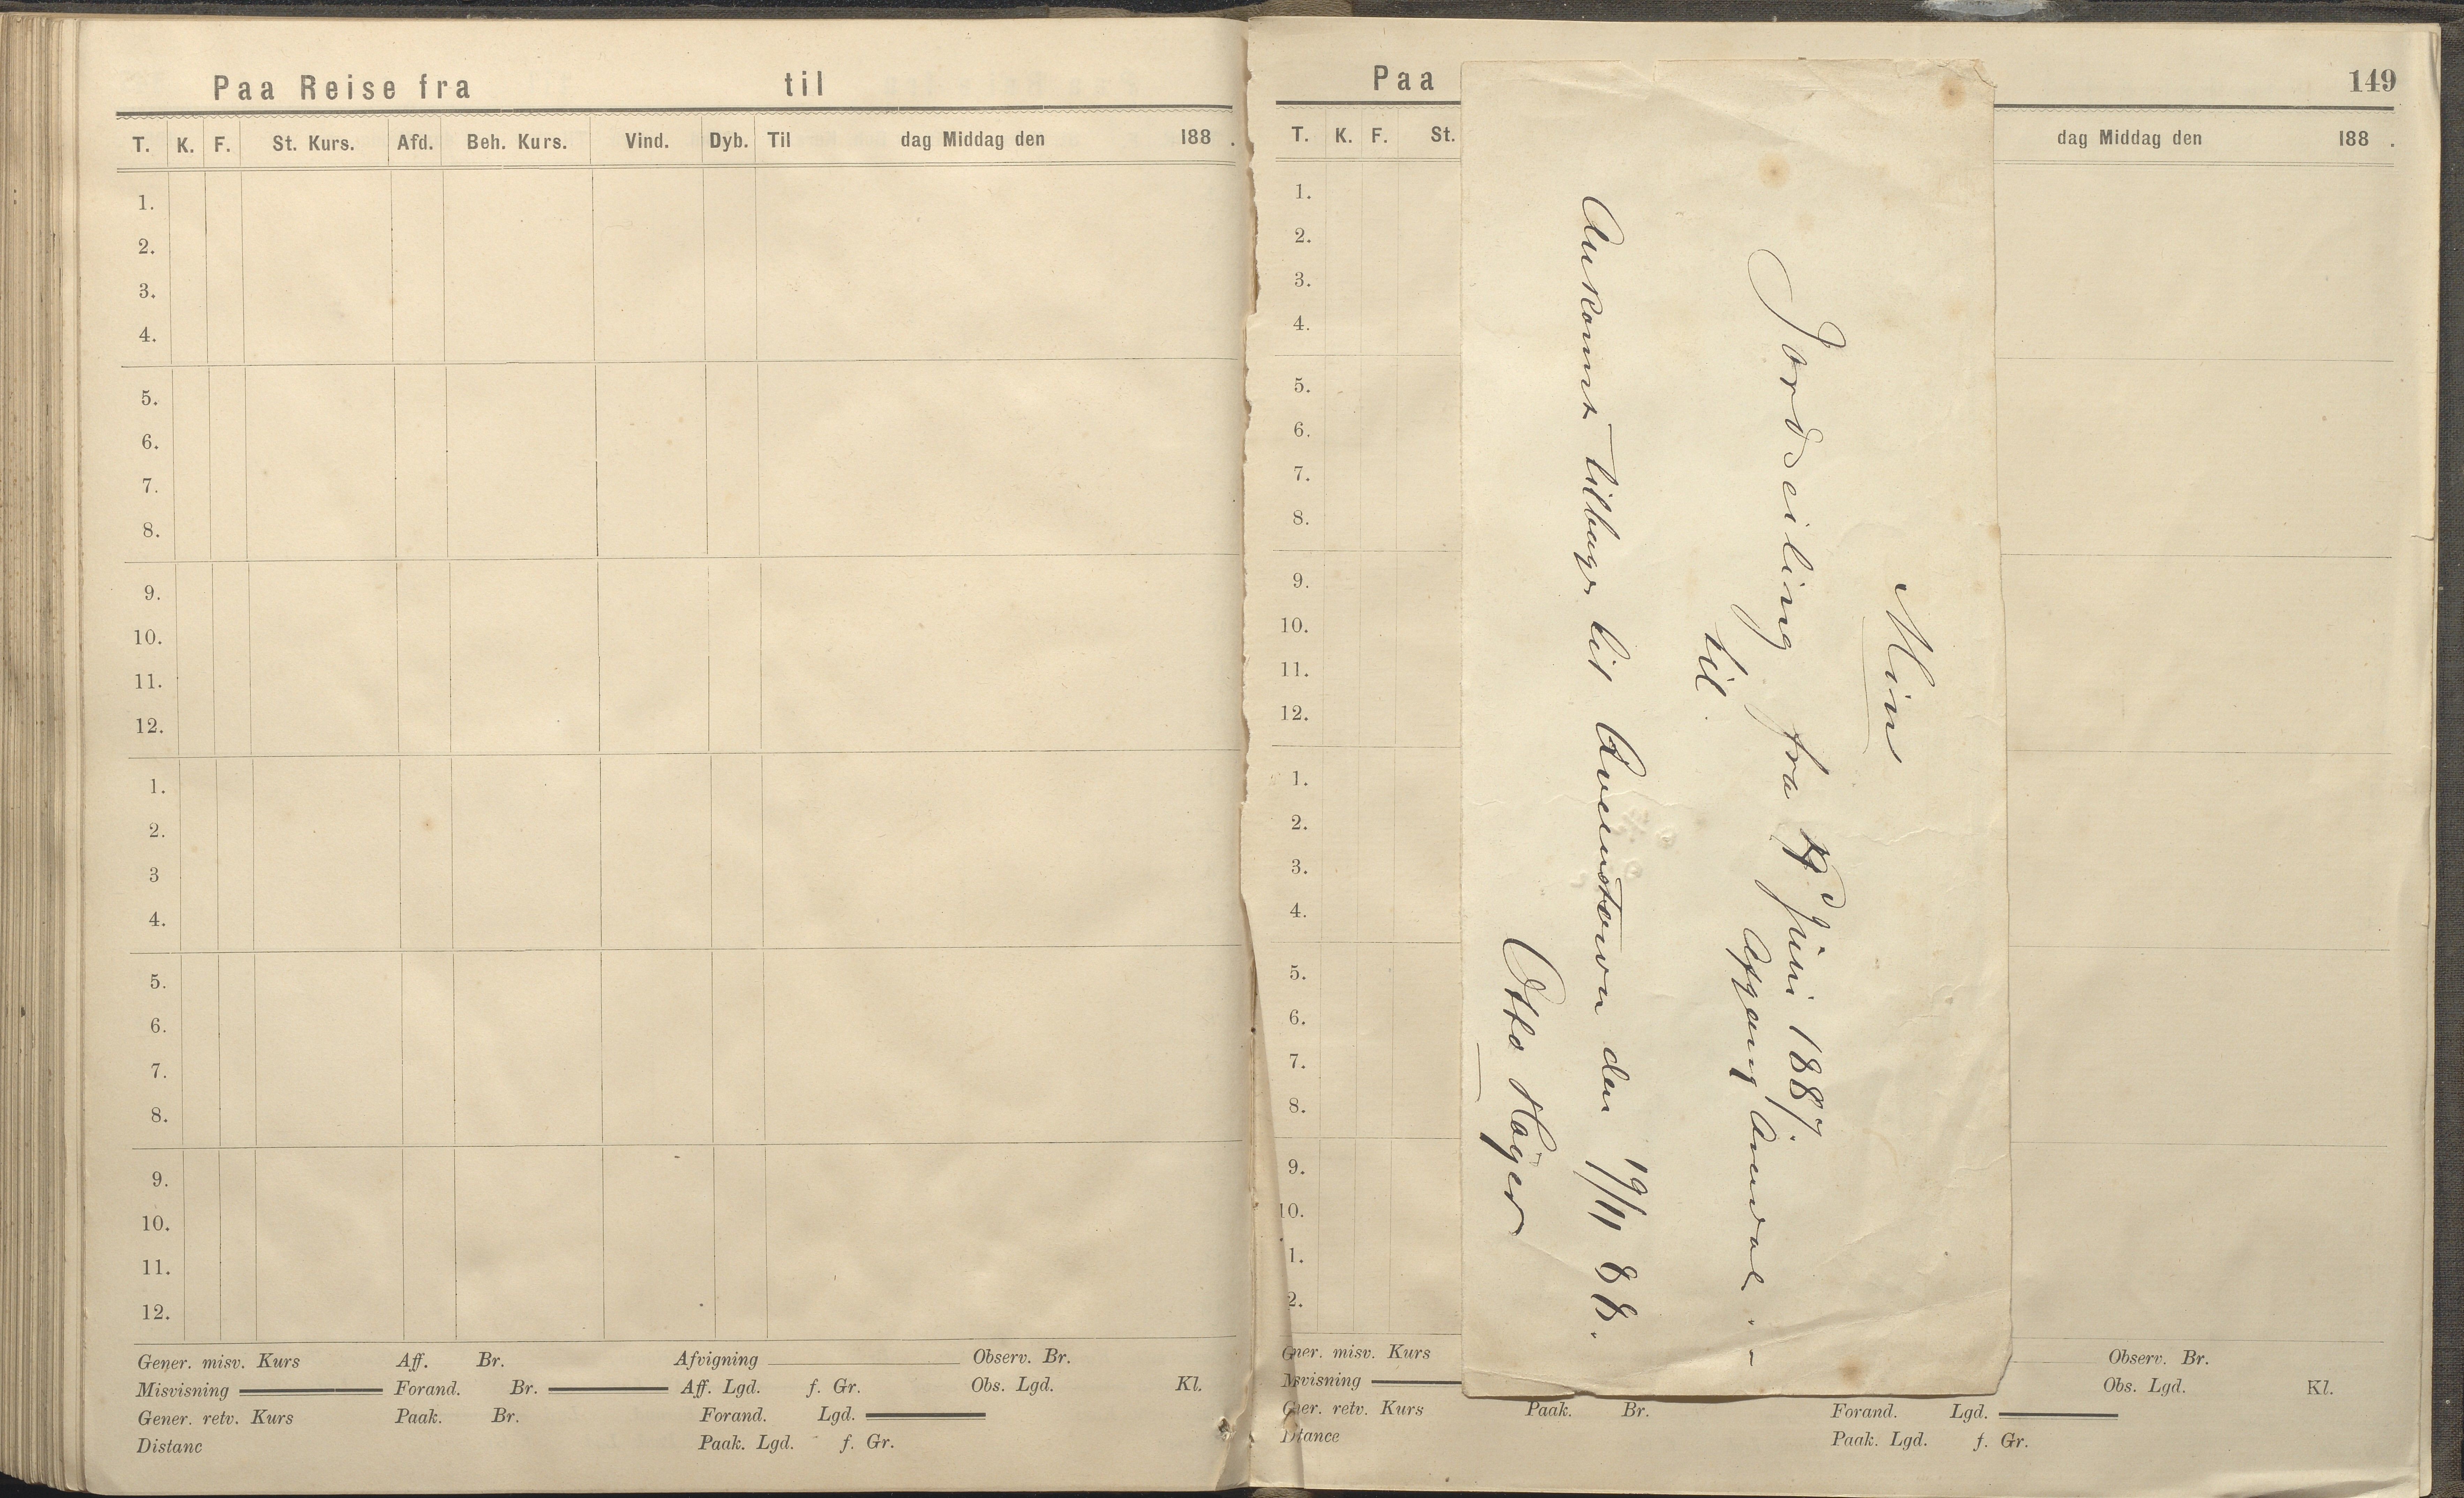 Paa Reise fra til
T. K. F. St. Kurs. Afd. Beh. Kurs. Vind. Dyb. Til dag Middag den 188 .
1.
2.
3.
4.
5.
6.
7.
8.
9.
10.
11.
12.
1.
2.
3
4.
5.
6.
7.
8.
9.
10.
11.
12.
Gener. misv. Kurs Aff. Br. Afvigning Observ. Br.
Misvisning Forand. Br. Aff. Lgd. f. Gr. Obs. Lgd. Kl.
Gener. retv. Kurs Paak. Br. Forand. Lgd.
Distanc Paak. Lgd. f. Gr.
Paa 149
T. K. F. St. dag Middag den 188 .
1.
2.
3.
4.
5.
6.
7.
8.
9.
10.
11.
12.
1.
2.
3.
4.
5.
6.
7.
8.
9.
10.
1.
2.
Min
Jordseiling fra Juni 1887.
Afgang Arendal
til
Ankomst tilbage til Queenstown den 19/11 88.
Otto Høyer
ner. misv. Kurs Observ. Br.
svisning Obs. Lgd. Kl.
er. retv. Kurs Paak. Br. Forand. Lgd.
tance Paak. Lgd. f. Gr.